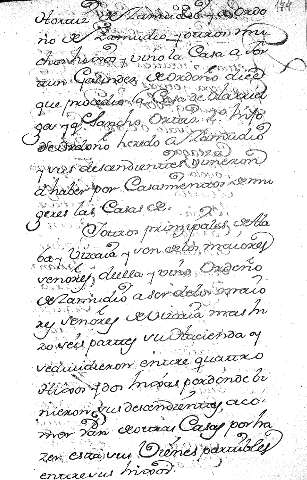 de Zamudio y a Ordo
ño de Zamudio y otros mu
chos hijos y vino la Casa a For
tun Galindez de Ordoño diez
que procedio la Casa de
gas y q.e Sancho Ortiz hijo
de heredo a Zamudio
y sus descendientes vinieron
à haber por Casamentos de mu
geres las Casas de
Y otros principales de Ala
ba y Vizcaia y son de los maiores
señores de ella y vino Ordoño
de Zamudio a ser de los maio
res señores de Vizcaia mas hi
zo seis partes su Hacienda y
se dividieron entre quattro
Hijos y dos hijas por donde bi
nieron sus descendientes a co
mo otras Casas por ha
zer estas sus Vienes partibles
entre sus hijos
174